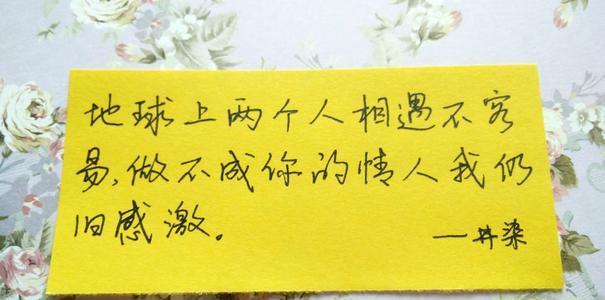 地球上两个人相遇不容
易,做不成你的情人我仍
旧感激。
一井染